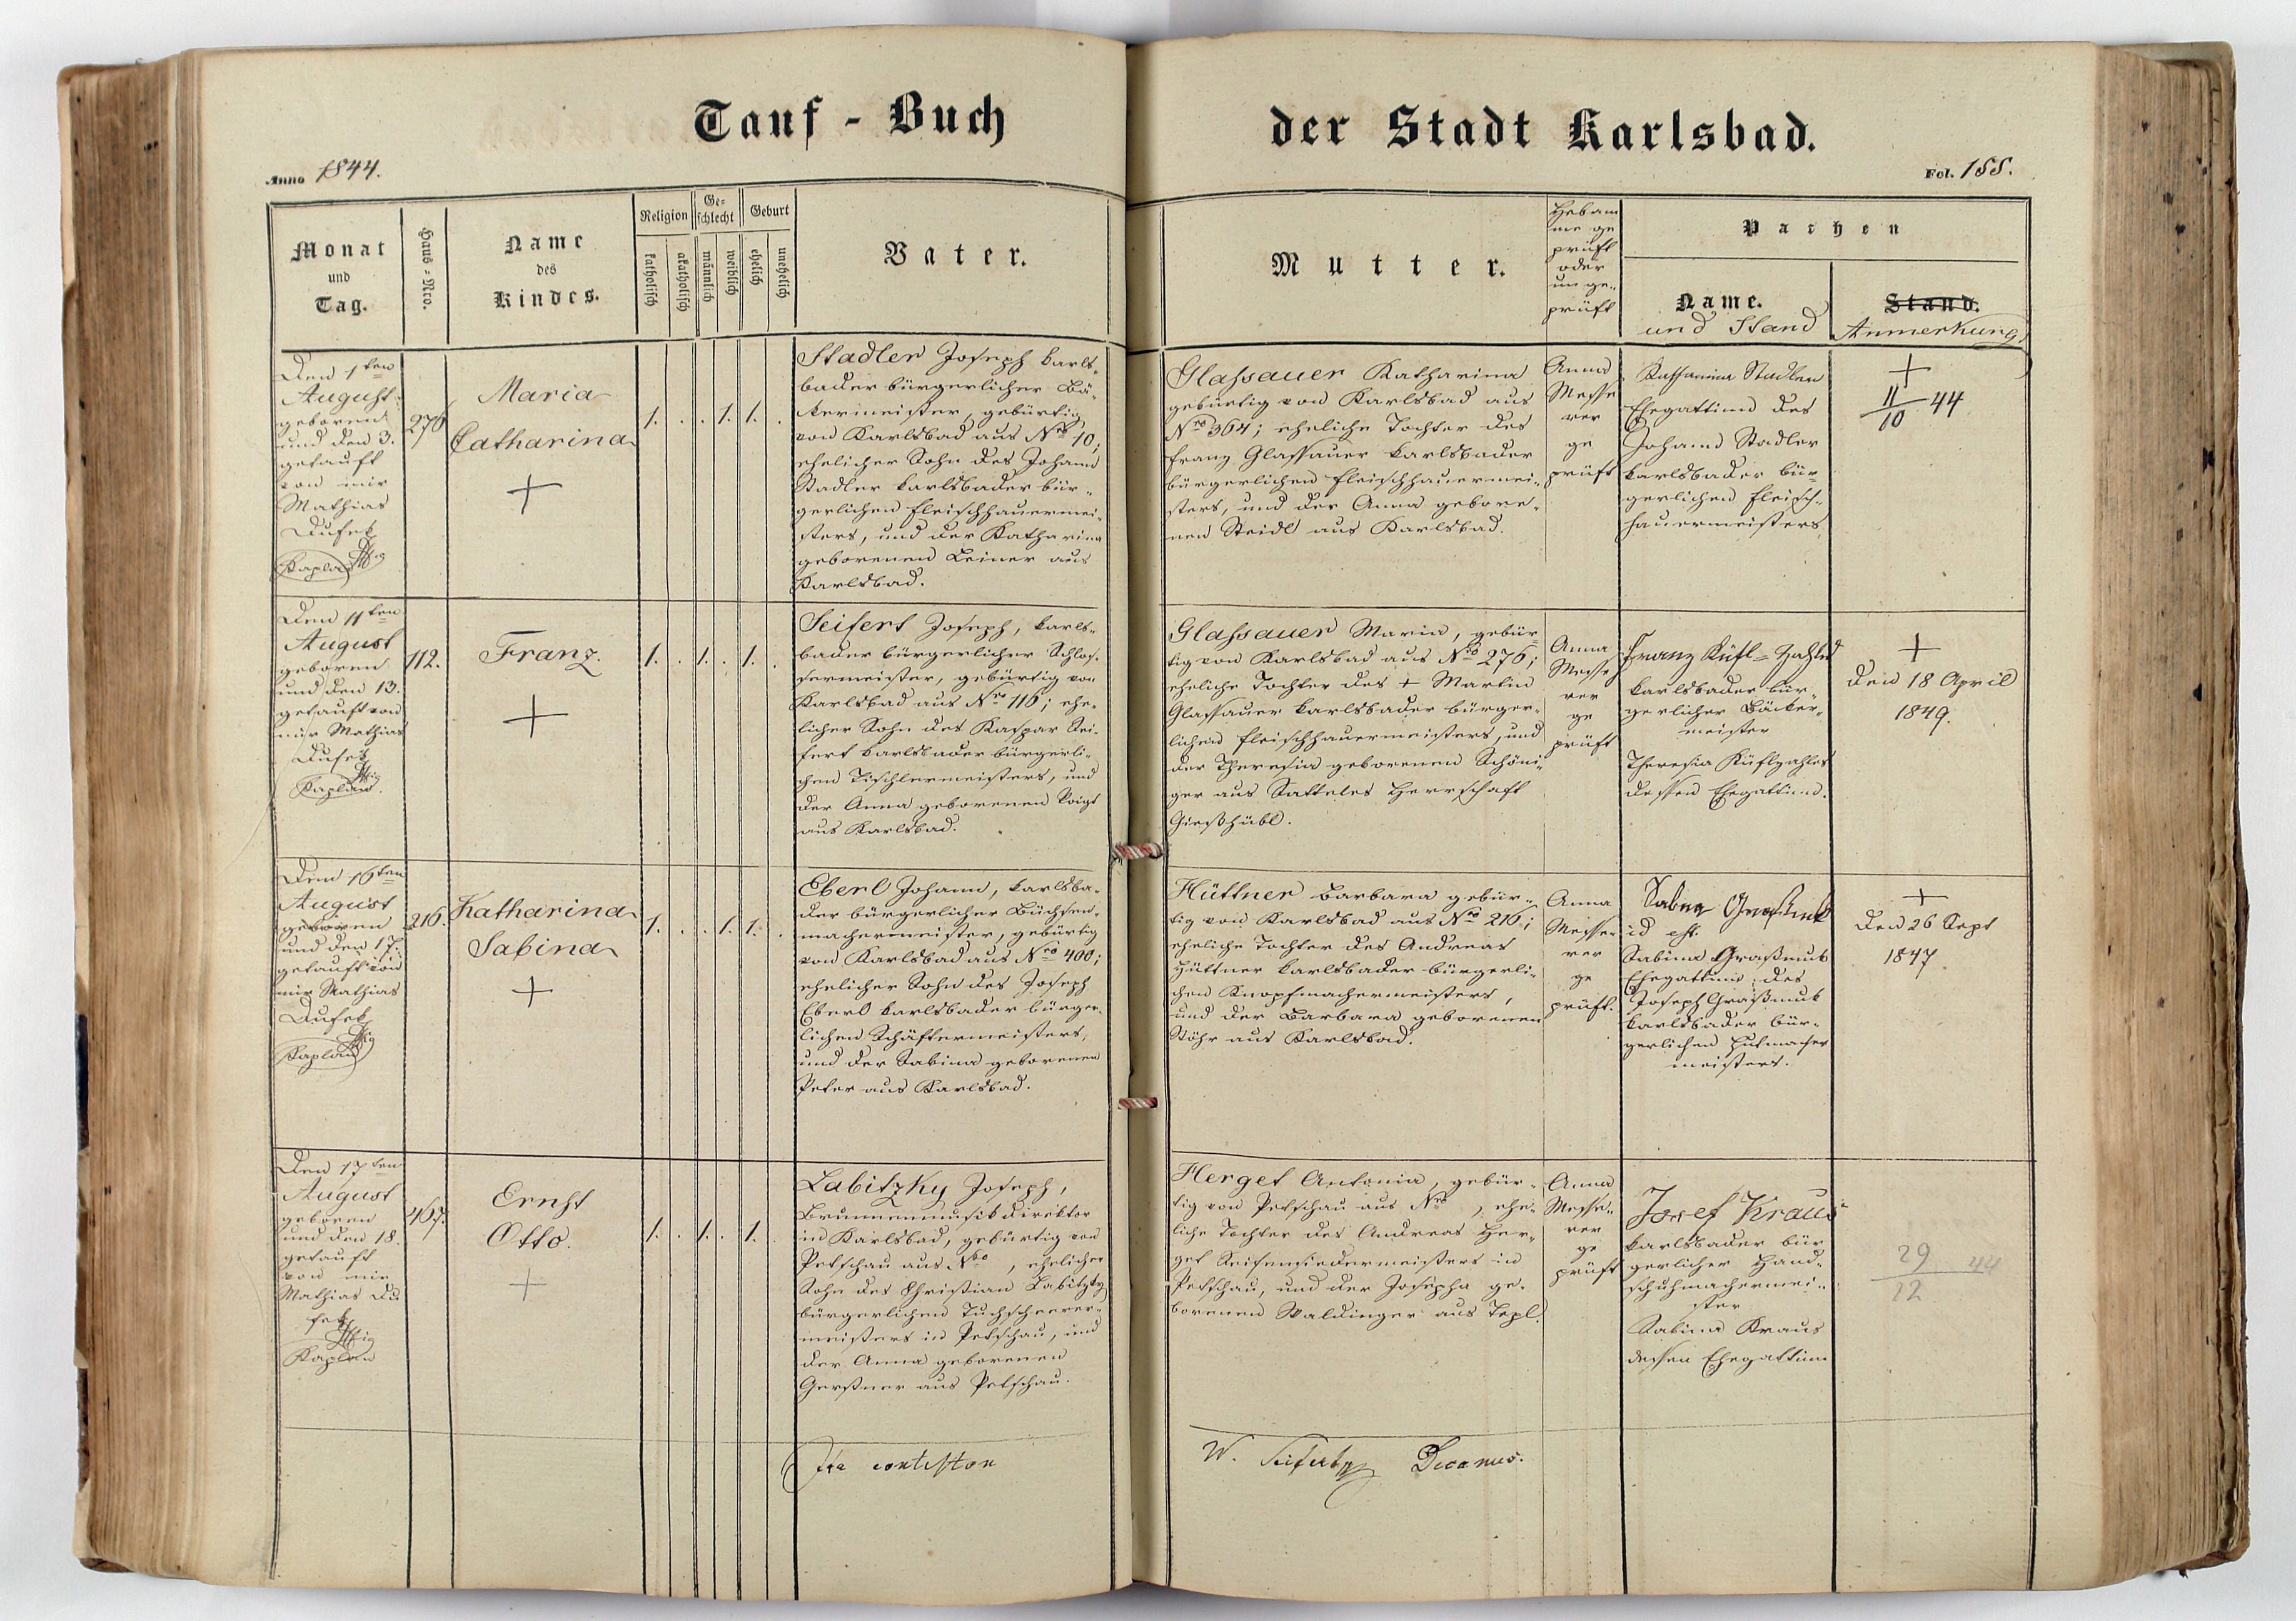 Tauf - Buch
der Stadt Karlsbad.
Anno 1844.
Fol. 155.
Monat
und
Tag.
Haus-Nro.
Name
des
Kindes.
Religion
katholisch
akatholisch
Ge-
schlecht
männlich
weiblich
Geburt
ehelich
unehelich
Vater.
Mutter.
Hebam
me ge
prüft
oder
unge-
prüft
Pathen
Name.
und Stand
Stand.
Anmerkung
Den 1ten
August
geboren
und den 3.
getauft
von mir
Mathias
Dufek
Kaplan
276
Maria
Catharina
+
1. . . 1. 1. .
Stadler Joseph karls-
bader bürgerlicher Bä-
kermeister, gebürtig
von Karlsbad aus Nro 10;
ehelicher Sohn des Johann
Stadler karlsbader bür-
gerlichen Fleischhauermei-
sters, und der Katharina
geborenen Leiner aus
Karlsbad.
Glassauer Katharina
gebürtig von Karlsbad aus
Nro 364; eheliche Tochter des
Franz Glassauer karlsbader
bürgerlichen Fleischhauermei-
sters, und der Anna gebore-
nen Steidl aus Karlsbad.
Anna
Messe
rer
ge
prüft
Katharina Stadler
Ehegattinn des
Johann Stadler
karlsbader bür-
gerlichen Fleisch-
hauermeisters
+
11/10 44
Den 11ten
August
geboren
und den 13.
getauft von
mir Mathias
Dufek
Kaplan.
112.
Franz.
+
1. . 1. . 1. .
Seifert Joseph, karls-
bader bürgerlicher Schlos-
sermeister, gebürtig von
Karlsbad aus Nro 116; ehe-
licher Sohn des Kaspar Sei-
fert karlsbader bürgerli-
chen Tischlermeisters, und
der Anna geborenen Voigt
aus Karlsbad.
Glassauer Maria, gebür-
tig von Karlsbad aus Nro 276;
eheliche Tochter des + Martin
Glassauer karlsbader bürger-
lichen Fleischhauermeisters, und
der Theresia geborenen Schöni-
ger aus Satteles Herrschaft
Gießhübl.
Anna
Messe
rer
ge
prüft
Franz
karlsbader bür-
gerlicher Bäcker-
meister
Theresia
dessen Ehegattinn.
+
Den 18 April
1849.
Den 16ten
August
geboren
und den 17.
getauft von
mir Mathias
Dufek
Kaplan
216.
Katharina
Sabina
+
1. . . 1. 1. .
Eberl Johann, karlsba-
der bürgerlicher Büchsen-
machermeister, gebürtig
von Karlsbad aus Nro 400;
ehelicher Sohn des Joseph
Eberl karlsbader bürger-
lichen Schäftermeisters,
und der Sabina geborenen
Peter aus Karlsbad.
Hüttner Barbara gebür-
tig von Karlsbad aus Nro 216;
eheliche Tochter des Andreas
Hüttner karlsbader bürgerli-
chen Knopfmachermeisters,
und der Barbara geborenen
Stöhr aus Karlsbad.
Anna
Messe-
rer
ge
prüft.
id est.
Sabina Graßmuk
Ehegattinn des
Joseph Graßmuk
karlsbader bür-
gerlichen Hutmacher
meisters.
+
Den 26 Sept
1847
Den 17ten
August
geboren
und den 18.
getauft
von mir
Mathias Du
fek
Kaplan
467.
Ernst
Otto.
+
1. . 1. . 1. .
Labitzky Joseph,
Brunnenmusikdirektor
in Karlsbad, gebürtig von
Petschau aus Nro , ehelicher
Sohn des Christian Labitzky
bürgerlichen Tuchscheerer-
meisters in Petschau, und
der Anna geborenen
Gerstner aus Petschau.
Herget Antonia, gebür-
tig von Petschau aus Nro , ehe-
liche Tochter des Andreas Her-
get Seifensiedermeisters in
Petschau, und der Josepha ge-
borenen Waldinger aus Tepl.
Anna
Messe-
rer
ge
prüft
Josef Kraus
karlsbader bür
gerlicher Hand-
schuhmachermei-
ster
Sabina Kraus
dessen Ehegattinn
29/12 44
Ita contestor
W. Seifert Decanus.